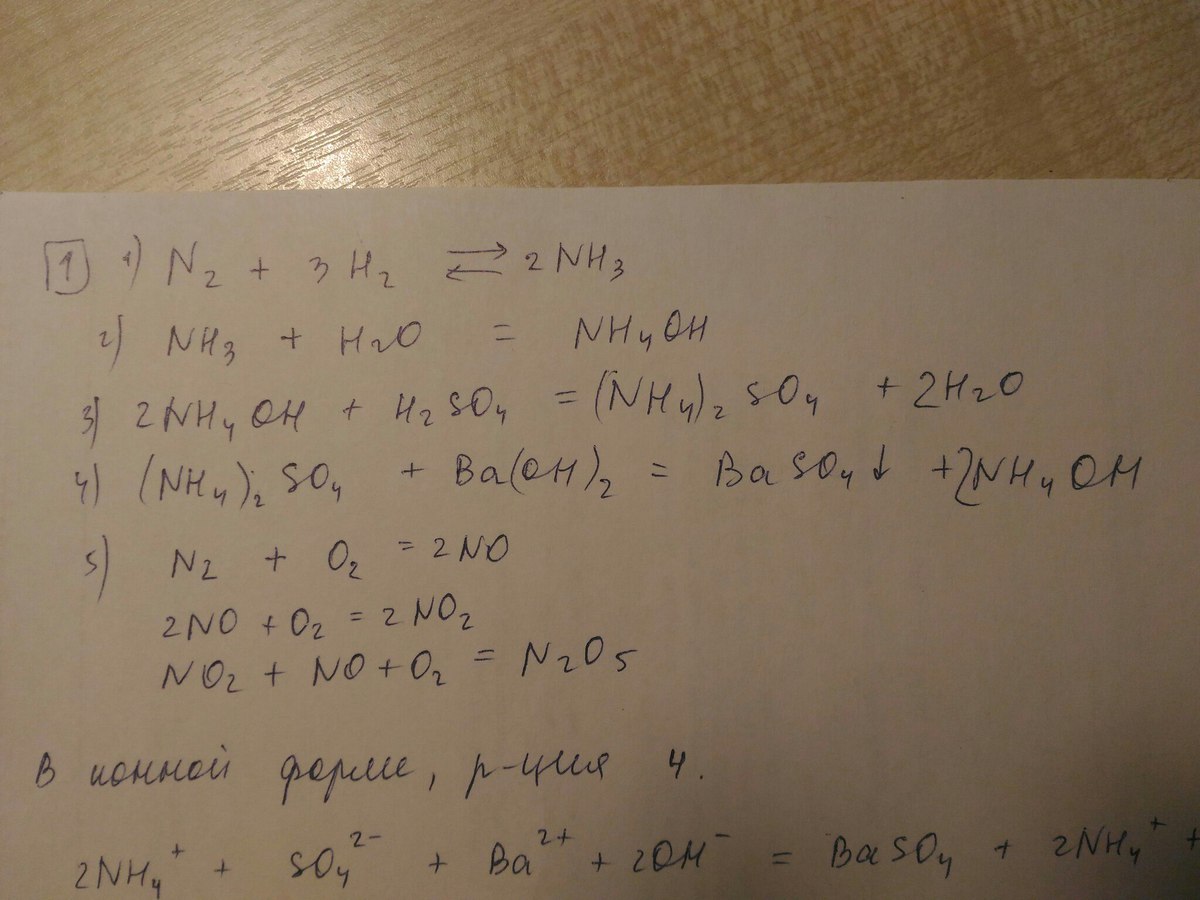 1 1) N₂ + 3H₂ ⇄ 2NH₃
2) NH₃ + H₂O = NH₄OH
3) 2NH₄OH + H₂SO₄ = (NH₄)₂SO₄ + 2H₂O
4) (NH₄)₂SO₄ + Ba(OH)₂ = BaSO₄↓ + 2NH₄OH
5) N₂ + O₂ = 2NO
2NO + O₂ = 2NO₂
NO₂ + NO + O₂ = N₂O₅
В ионной форме, р-ция 4.
2NH₄⁺ + SO₄²⁻ + Ba²⁺ + 2OH⁻ = BaSO₄ + 2NH₄⁺ +